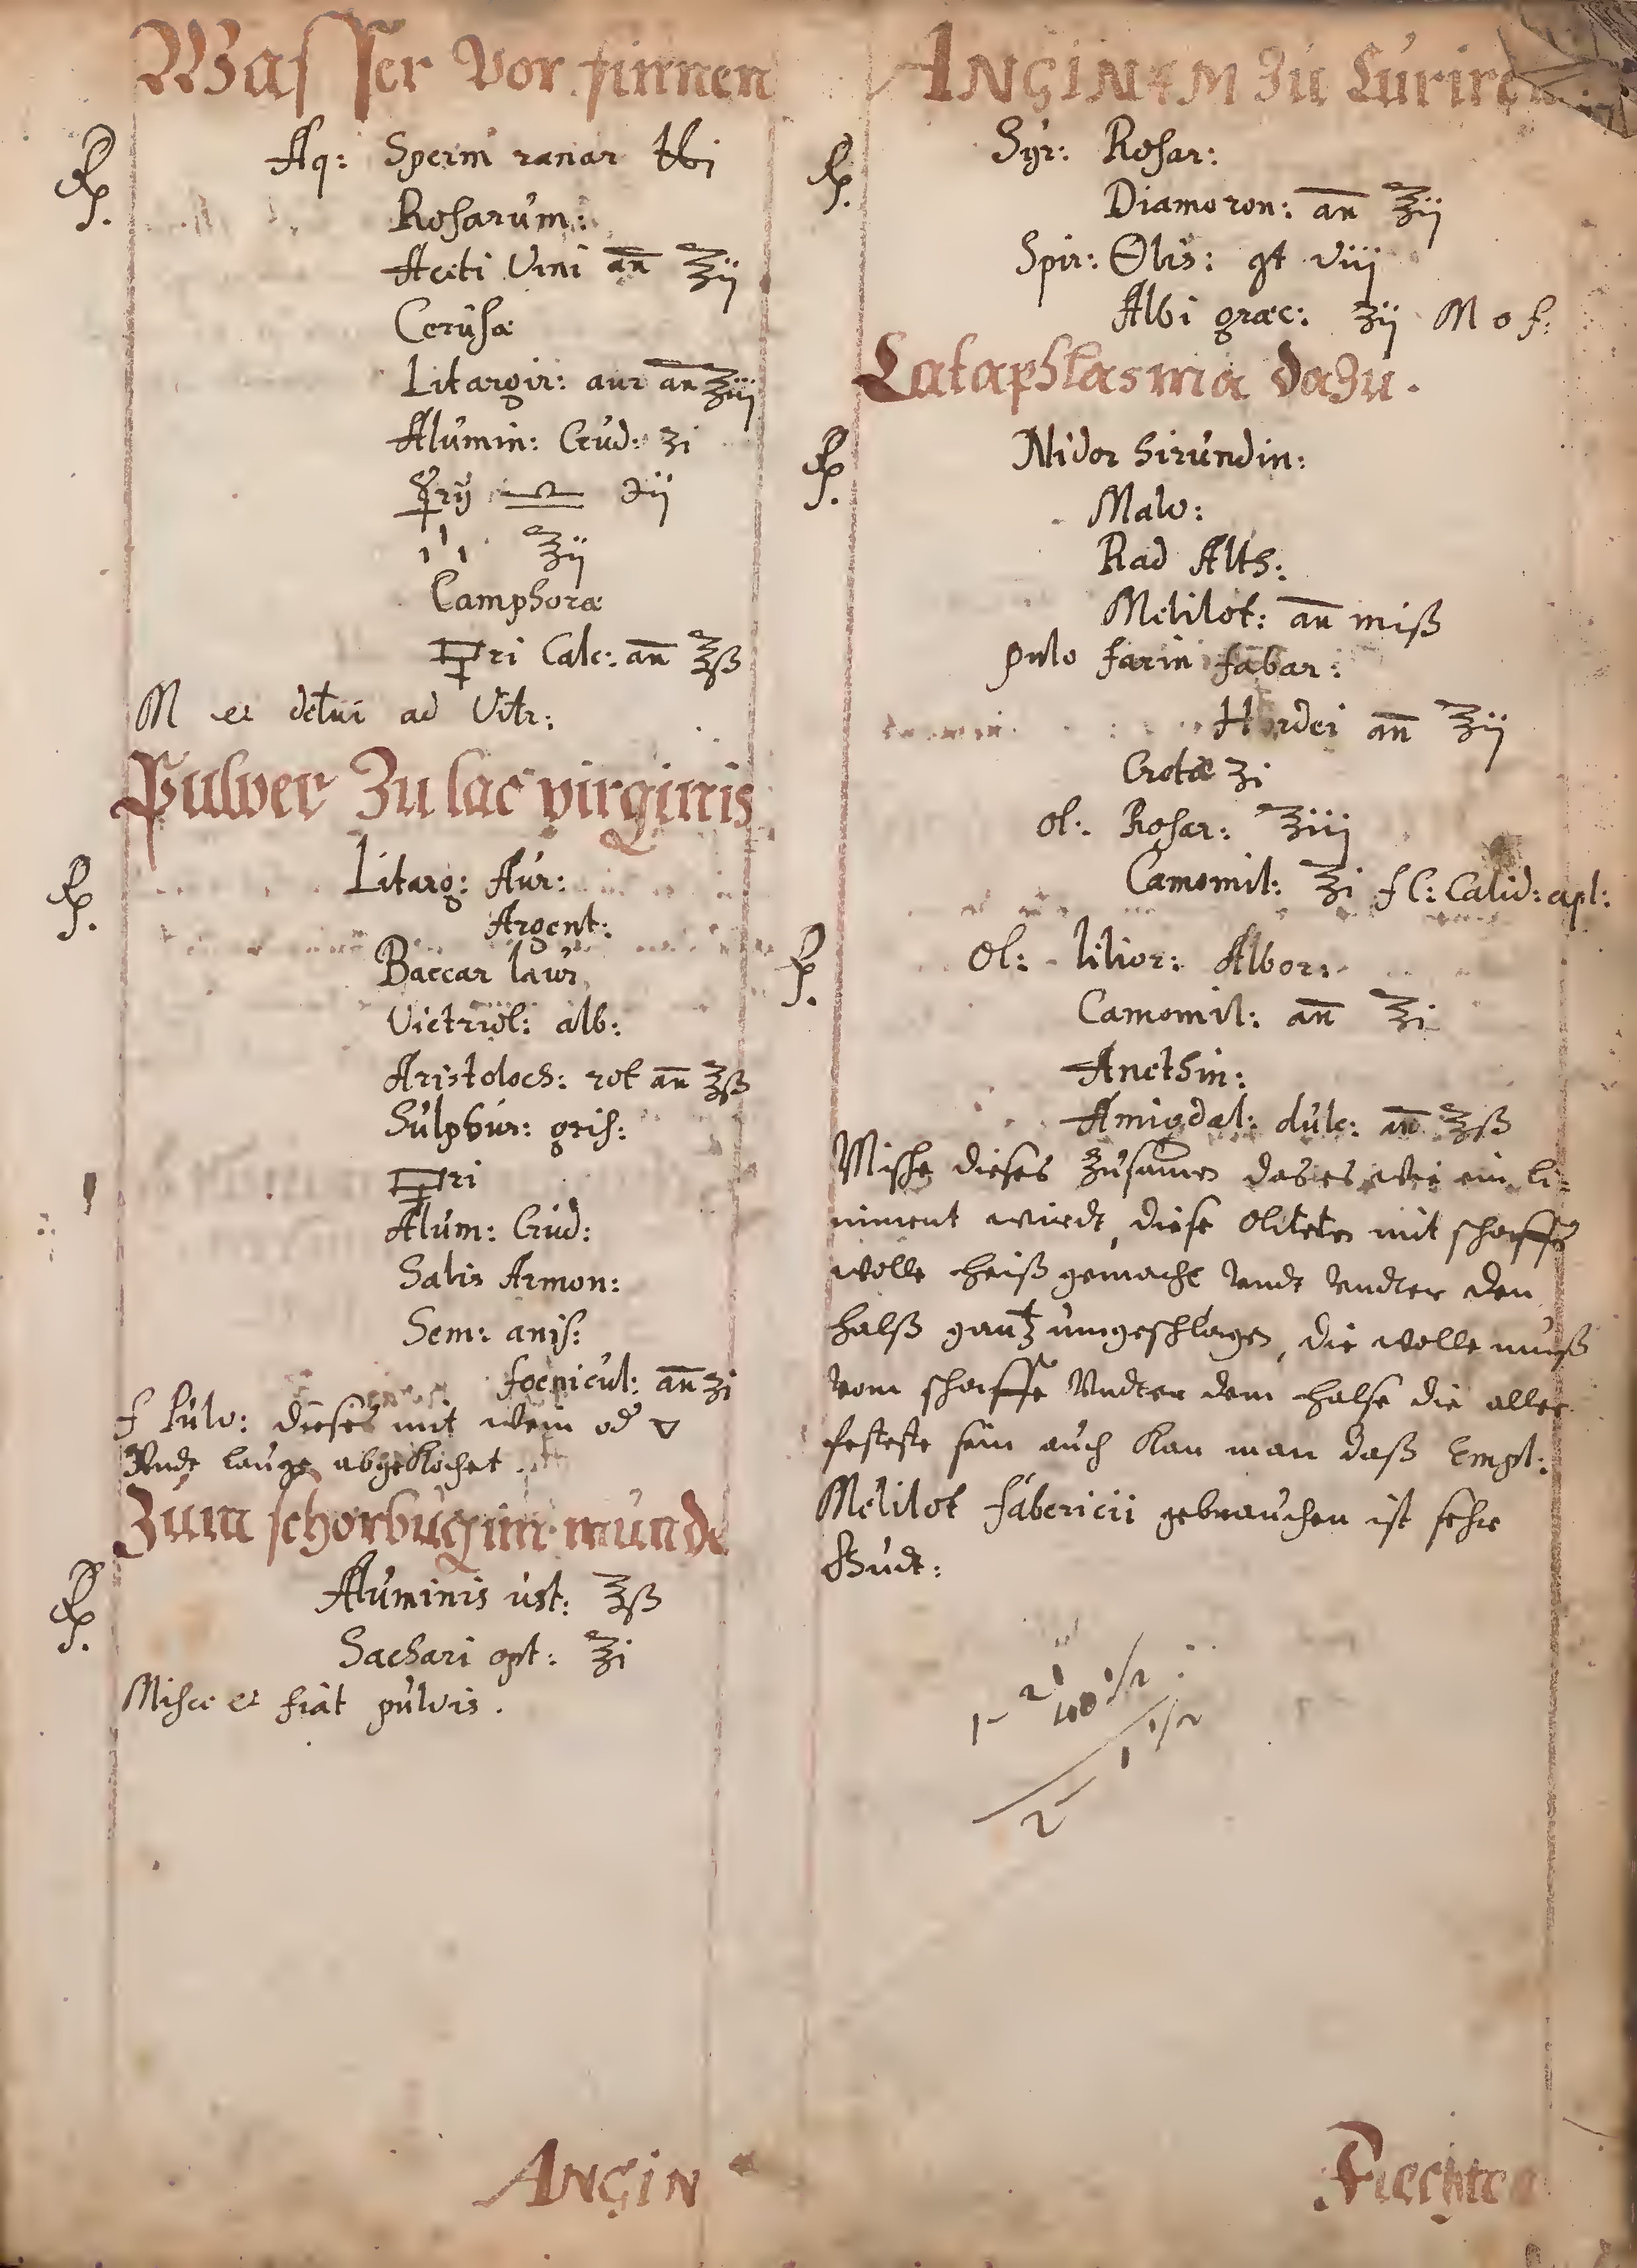 Wasser Vor finnen
℞. Aq: Sperm ranar ℔i
Rosarum:
Aceti Vini an̄ ℥ij
Cerusæ
Litargir: aur an̄ ℥iij
Alumin: Crud: ʒi
☿rij ♎ ℈ij
℥ij
Camphoræ
🜿ri Calc: an̄ ℥ß
M et detur ad Vitr:
Pulver Zu lac virginis
℞. Litarg: Aur:
Argent:
Baccar laur
Victriol: alb:
Aristoloch: rot an̄ ℥ß
Sulphur: gris:
🜿ri
Alum: Crud:
Salis Armon:
Sem: anis:
foenicul: an̄ ʒi
f Pulv: dieses mit wein od 🜄
Vndt lauge abgekochet
Zum schorbug im munde
℞. Aluminis ust: ℥ß
Sachari opt: ℥i
Misce et fiat pulvis.
ANGIN
ANGINAM Zu Curiren
℞. Syr: Rosar:
Diamoron: an̄ ℥ij
Spir: 🜖lis: gt viij
Albi græc: ʒij M o f:
Cataphlasma dazu.
℞. Nidor hirundin:
Malv:
Rad Alth:
Melilot: an̄ miß
pulv farin fabar:
Hordei an̄ ℥ij
Crotæ ʒi
ol: Rosar: ℥iij
Camomil: ℥i f C: Calid: apl:
℞. Ol: lilior: Albor:
Camomil: an̄ ℥i
Anethin:
Amigdal: dulc: an̄ ℥ß
Mische dieses zusamen das es wie ein li=
niment wirdt, diese Oliteten mit schaffe
wolle heiß gemacht Vndt Vndter den
halß gantz umgeschlagen, die wolle muß
vom schaffe Vndter dem halse die aller
festeste sein auch kan man daß Empl:
Melilot fabericii gebrauchen ist sehr
Gudt:
1- 2 1/2
1 1/2
2
Flechten